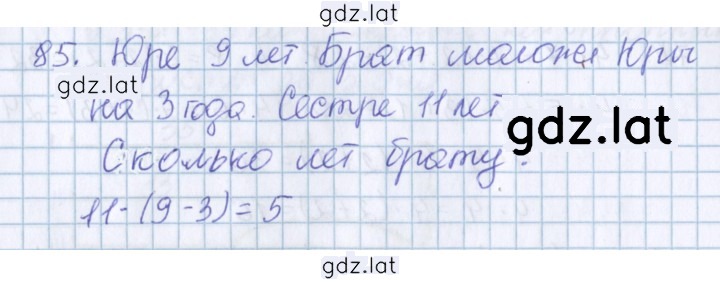 gdz.lat
85. Юре 9 лет. Брат моложе Юры
gdz.lat
на 3 года. Сестре 11 лет
gdz.lat
Сколько лет брату?
11-(9-3)=5
gdz.lat